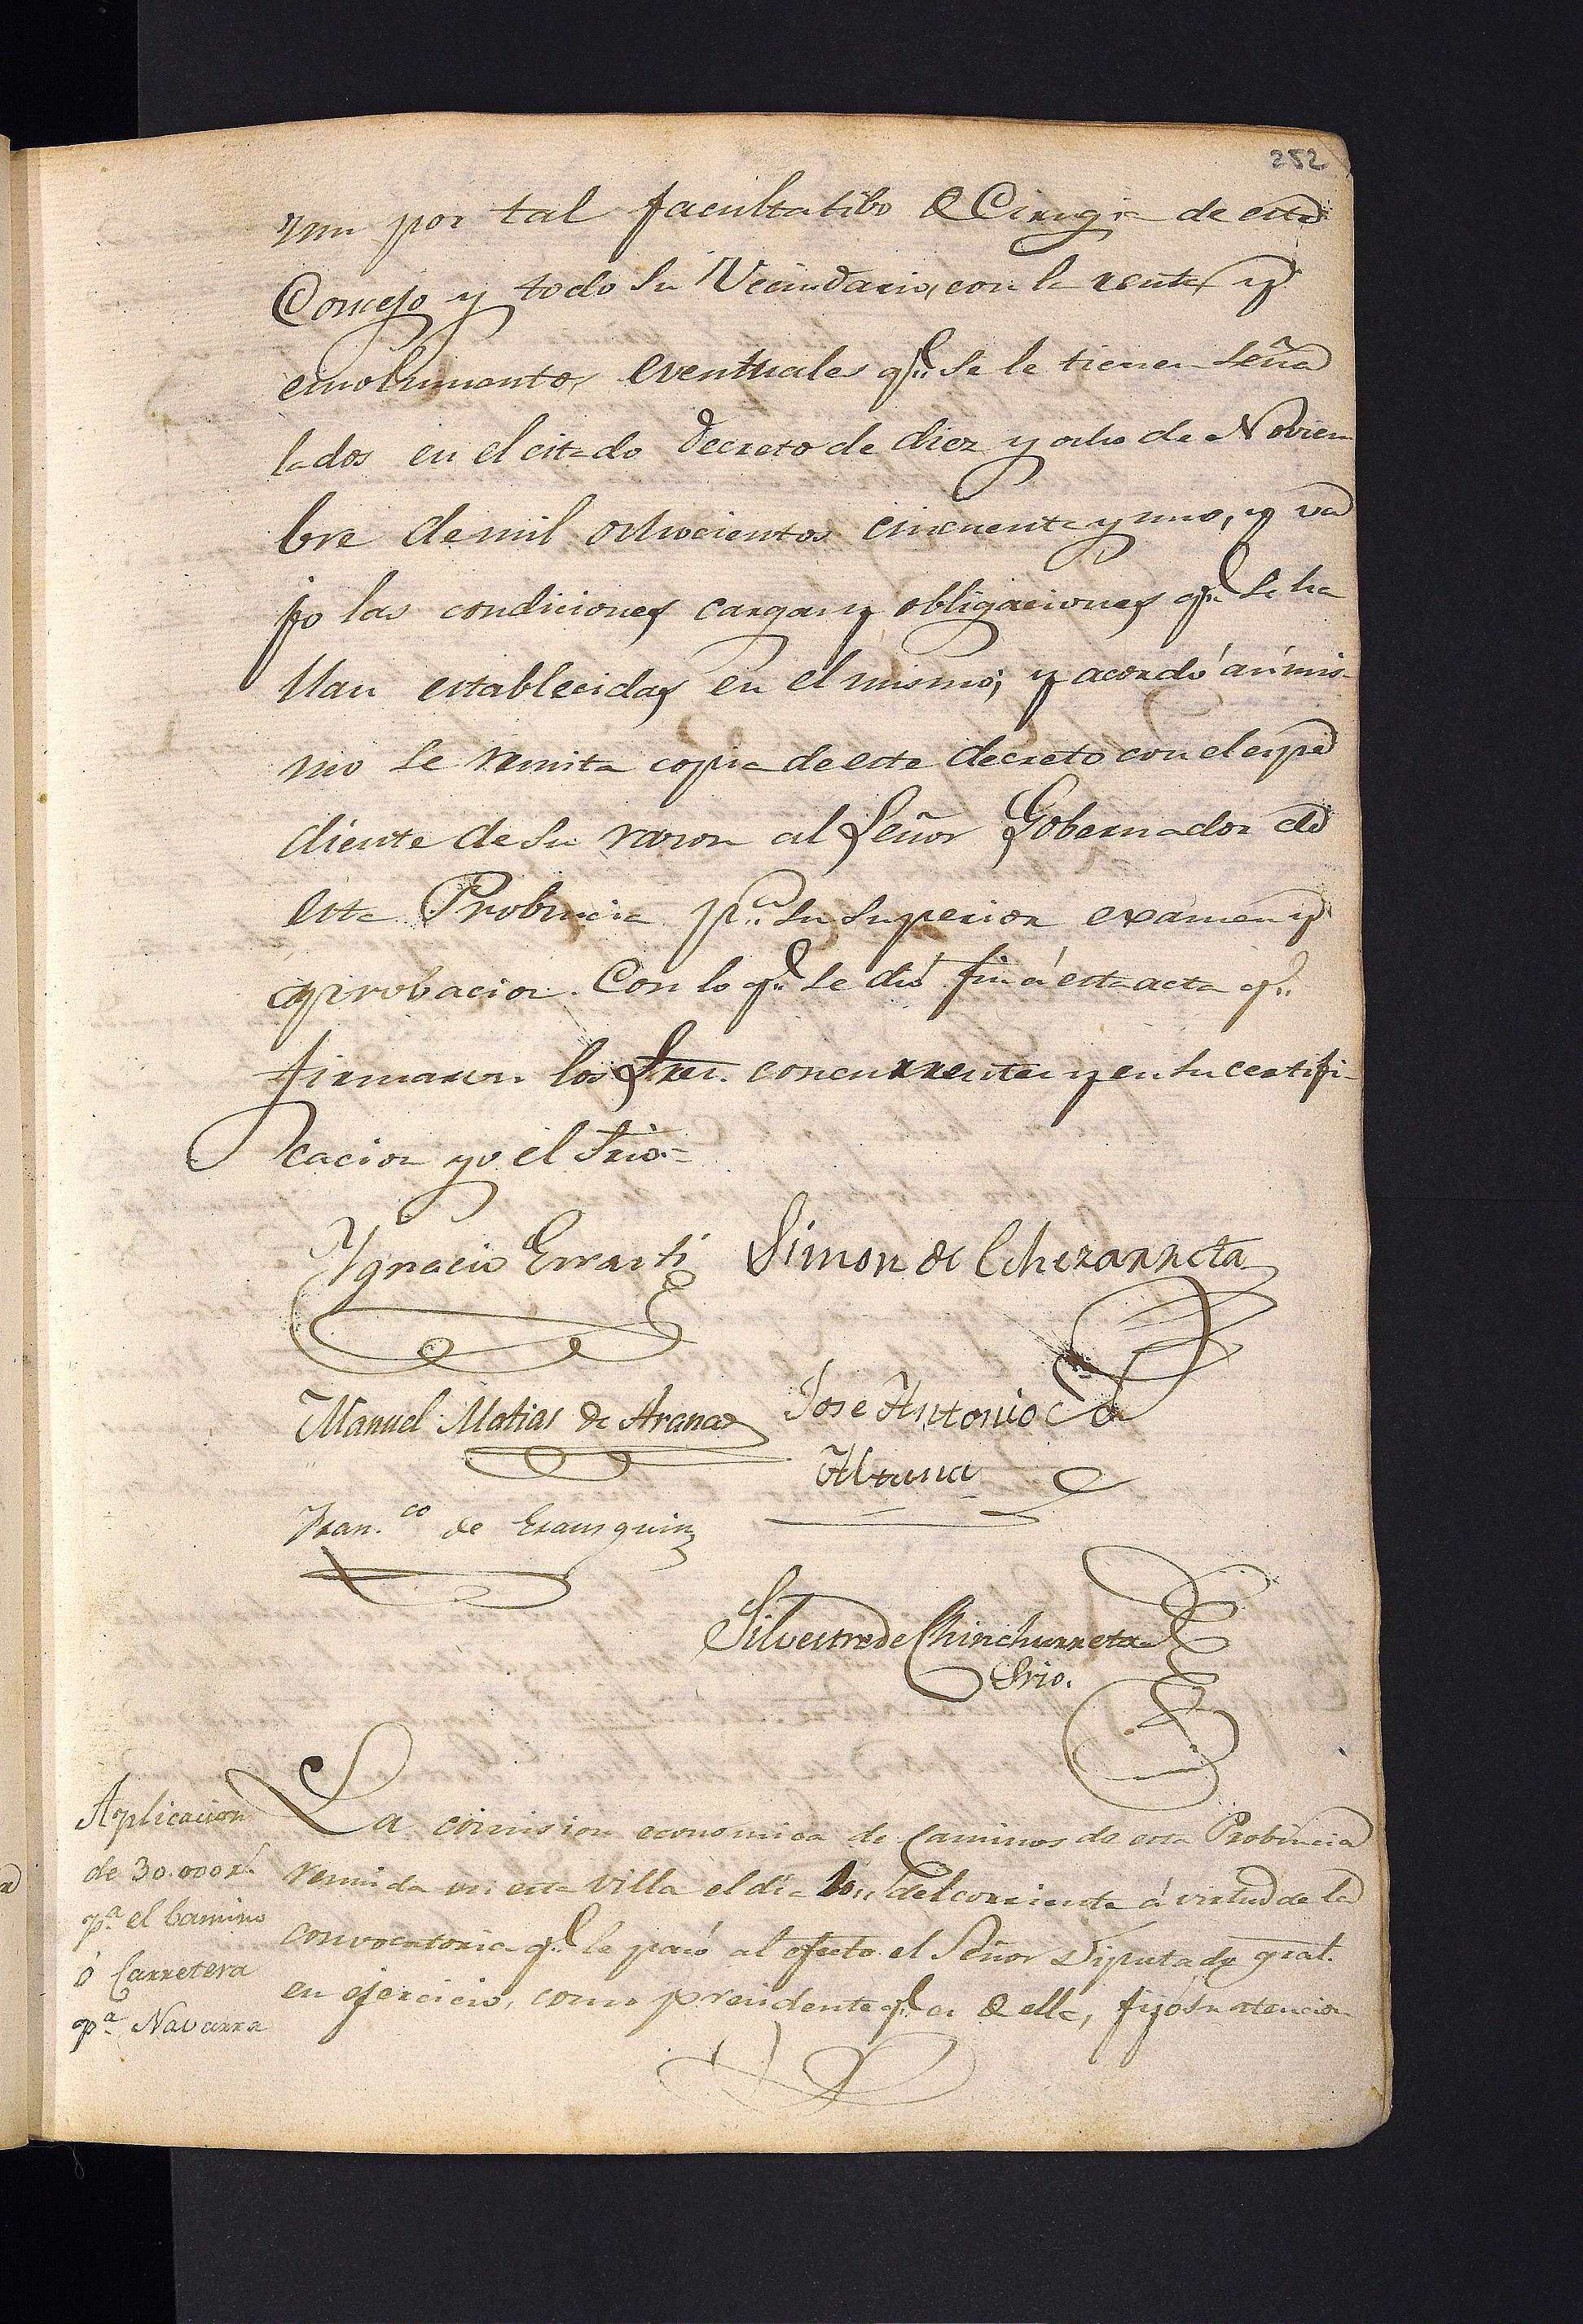 252
por tal facultatibo de Cirugia de este
Concejo y todo su Vecindario, con la renta y
emolumentos eventuales qe. se le tienen seña
lados en el citado Decreto de diez y ocho de Noviem
bre de mil ochocientos cincuenta y uno, y va
jo las condiciones cargas y obligaciones qe. se ha
llan establecidas en el mismo; y acordó asimis-
mo se remita copia de este decreto con el espe
diente de su razon al Señor Gobernador de
esta Probincia pa. su superior examen y
aprobacion. Con lo qe. se dió fin á esta acta qe.
firmaron los Sres. concurrentes y en su certifi-
cacion yo el Srio.=
Ygnacio Errasti Simon de Echezarreta
Manuel Matias de Arana Jose Antonio de
Altuna
Fran.co de Erausquin
Silvestre de Chinchurreta
Srio.
Aplicacion
de 30.000 rs.
pa. el Camino
ó Carretera
pa. Navarra
La comision economica de Caminos de esta Probincia
reunida en esta Villa el dia del corriente á virtud de la
convocatoria qe. le pasó al efecto el Señor Diputado gral.
en ejercicio, como presidente qe. es de ella, fijó su atencion